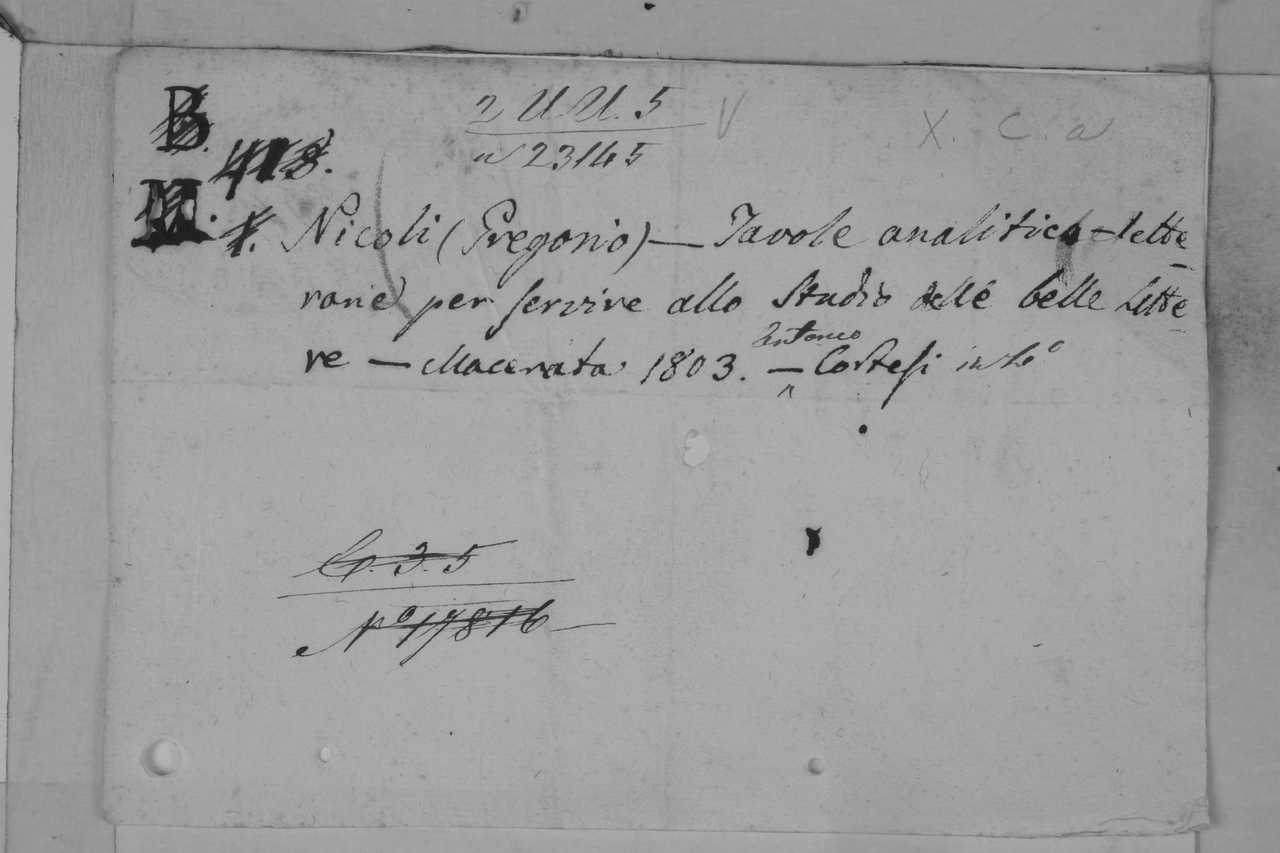 B.
2 U U. 5 V
X. C. a
418.
n 23145
M.
1. Nicoli (Gregorio) — Tavole analitico-lette
rarie per servire allo Studio delle belle Lette
re — Macerata 1803. — Antonio Cortesi in 4°
G. 3. 5
N° 17816